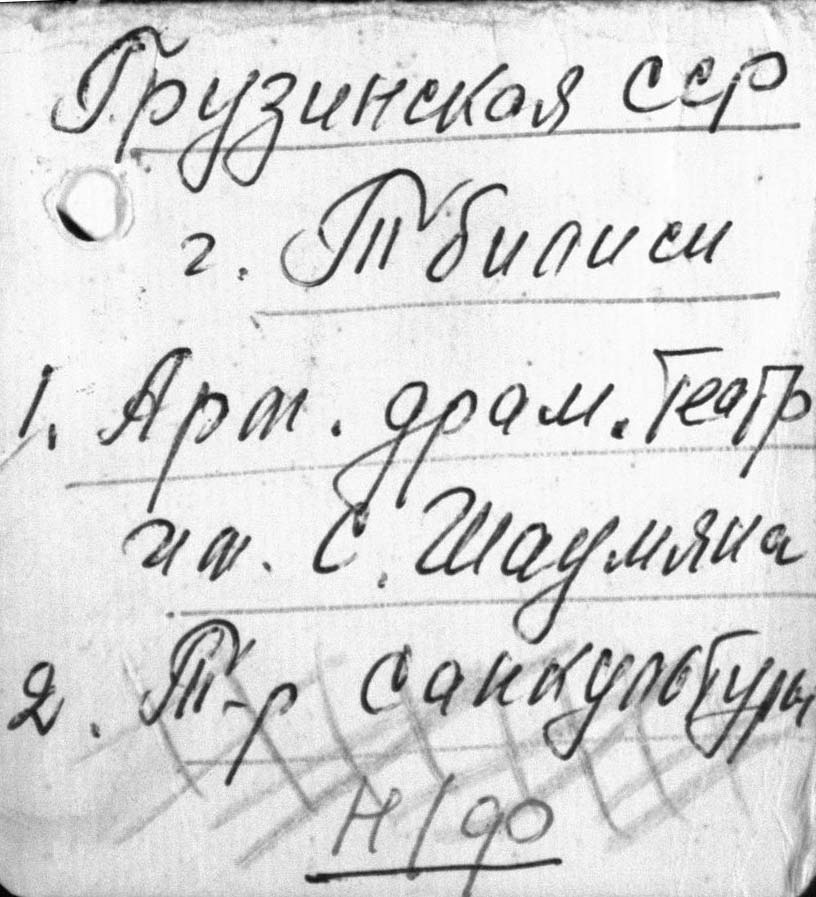 Грузинская ССР
г. Тбилиси
1. Арм. драм. театр
им. С. Шаумяна
2. Т-р санкультуры
Н/до